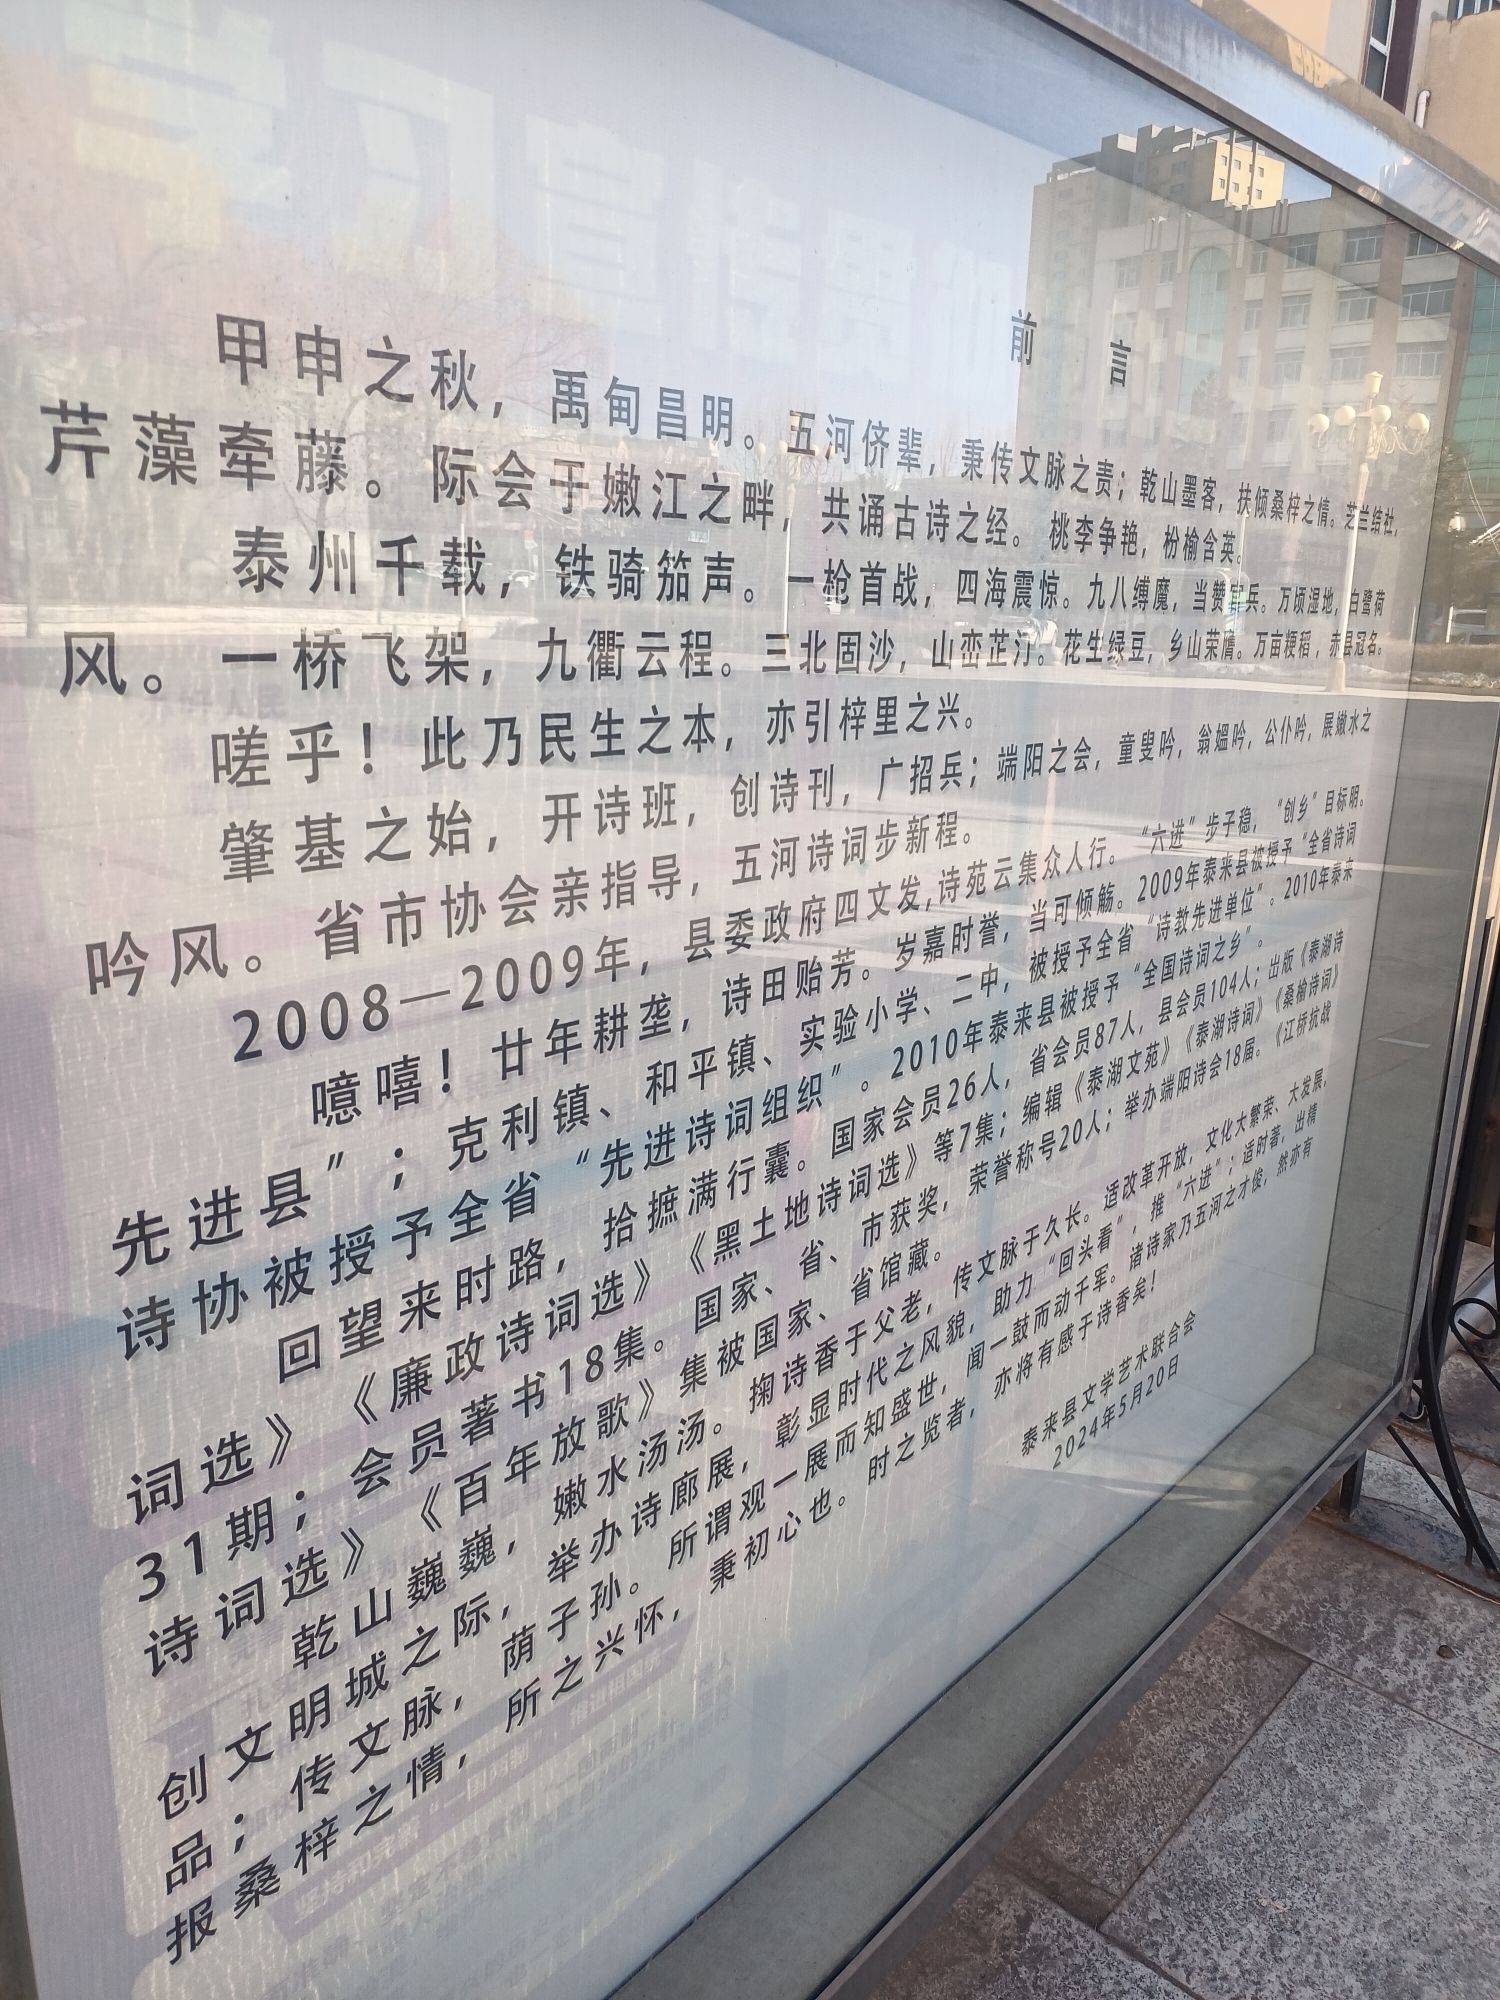 前 言
甲申之秋，禹甸昌明。五河侪辈，秉传文脉之责；乾山墨客，扶倾桑梓之情。芝兰结社，
芹藻牵藤。际会于嫩江之畔，共诵古诗之经。桃李争艳，枌榆含英。
泰州千载，铁骑笳声。一枪首战，四海震惊。九八缚魔，当赞官兵。万顷湿地，白鹭荷
风。一桥飞架，九衢云程。三北固沙，山峦芷汀。花生绿豆，乡山荣膺。万亩粳稻，赤县冠名。
嗟乎！此乃民生之本，亦引梓里之兴。
肇基之始，开诗班，创诗刊，广招兵；端阳之会，童叟吟，翁媪吟，公仆吟，展嫩水之
吟风。省市协会亲指导，五河诗词步新程。
2008—2009年，县委政府四文发,诗苑云集众人行。“六进”步子稳，“创乡”目标明。
噫嘻！廿年耕垄，诗田贻芳。岁嘉时誉，当可倾觞。2009年泰来县被授予“全省诗词
先进县”；克利镇、和平镇、实验小学、二中，被授予全省“诗教先进单位”。2010年泰来
诗协被授予全省“先进诗词组织”。2010年泰来县被授予“全国诗词之乡”。
回望来时路，拾摭满行囊。国家会员26人，省会员87人，县会员104人；出版《泰湖诗
词选》《廉政诗词选》《黑土地诗词选》等7集；编辑《泰湖文苑》《泰湖诗词》《桑榆诗词》
31期；会员著书18集。国家、省、市获奖，荣誉称号20人；举办端阳诗会18届。《江桥抗战
诗词选》《百年放歌》集被国家、省馆藏。
乾山巍巍，嫩水汤汤。掬诗香于父老，传文脉于久长。适改革开放，文化大繁荣、大发展，
创文明城之际，举办诗廊展，彰显时代之风貌，助力“回头看”，推“六进”；适时著，出精
品；传文脉，荫子孙。所谓观一展而知盛世，闻一鼓而动千军。诸诗家乃五河之才俊，然亦有
报桑梓之情，所之兴怀，秉初心也。时之览者，亦将有感于诗香矣！
泰来县文学艺术联合会
2024年5月20日